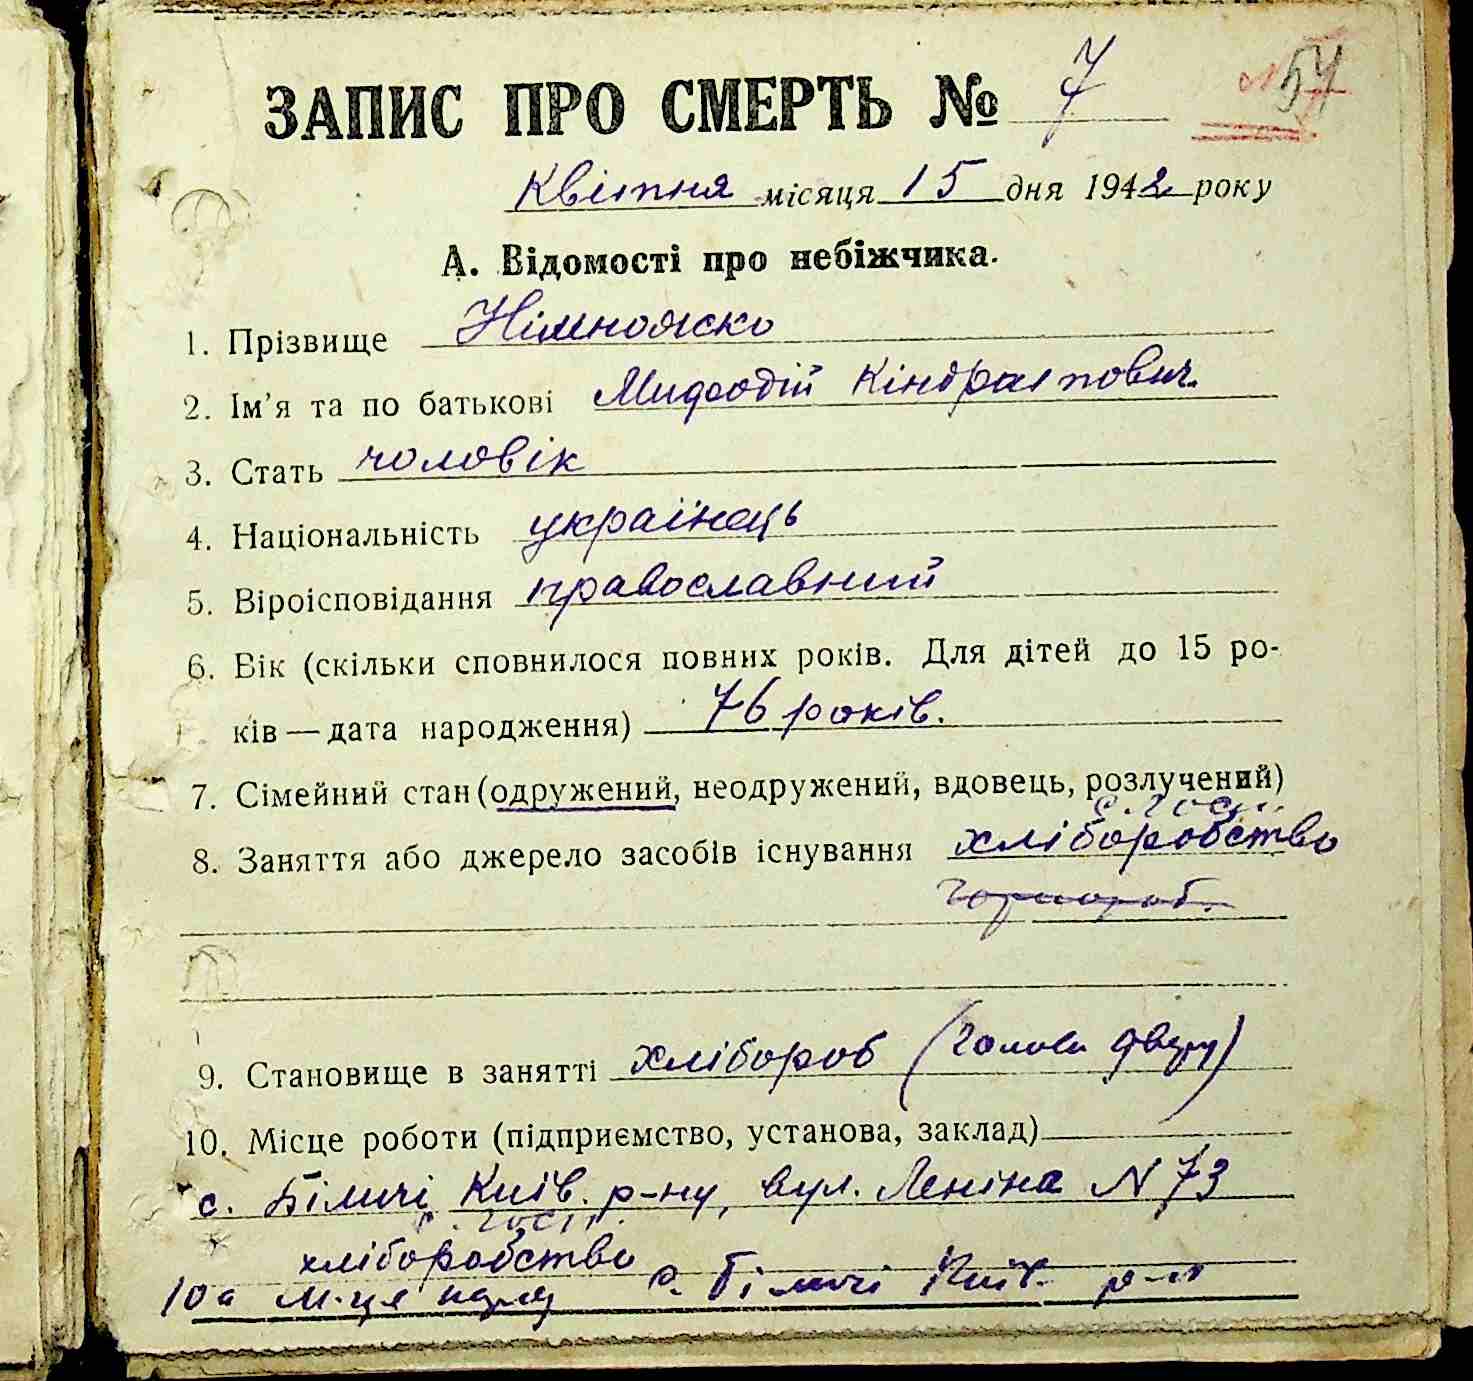 ЗАПИС ПРО СМЕРТЬ № 7
57
Квітня місяця 15 дня 1942 року
А. Відомості про небіжчика.
1. Прізвище Німножко
2. Ім'я та по батькові Мифодій Кіндратович.
3. Стать чоловік
4. Національність українець
5. Віроісповідання православний
6. Вік (скільки сповнилося повних років. Для дітей до 15 ро-
ків — дата народження) 76 років.
7. Сімейний стан (одружений, неодружений, вдовець, розлучений)
8. Заняття або джерело засобів існування хліборобство
9. Становище в занятті хлібороб (голова двору)
10. Місце роботи (підприємство, установа, заклад)
с. Біличі Київ. р-ну, вул. Леніна N 73
хліборобство
10а м-це с. Біличі Київ. р-н